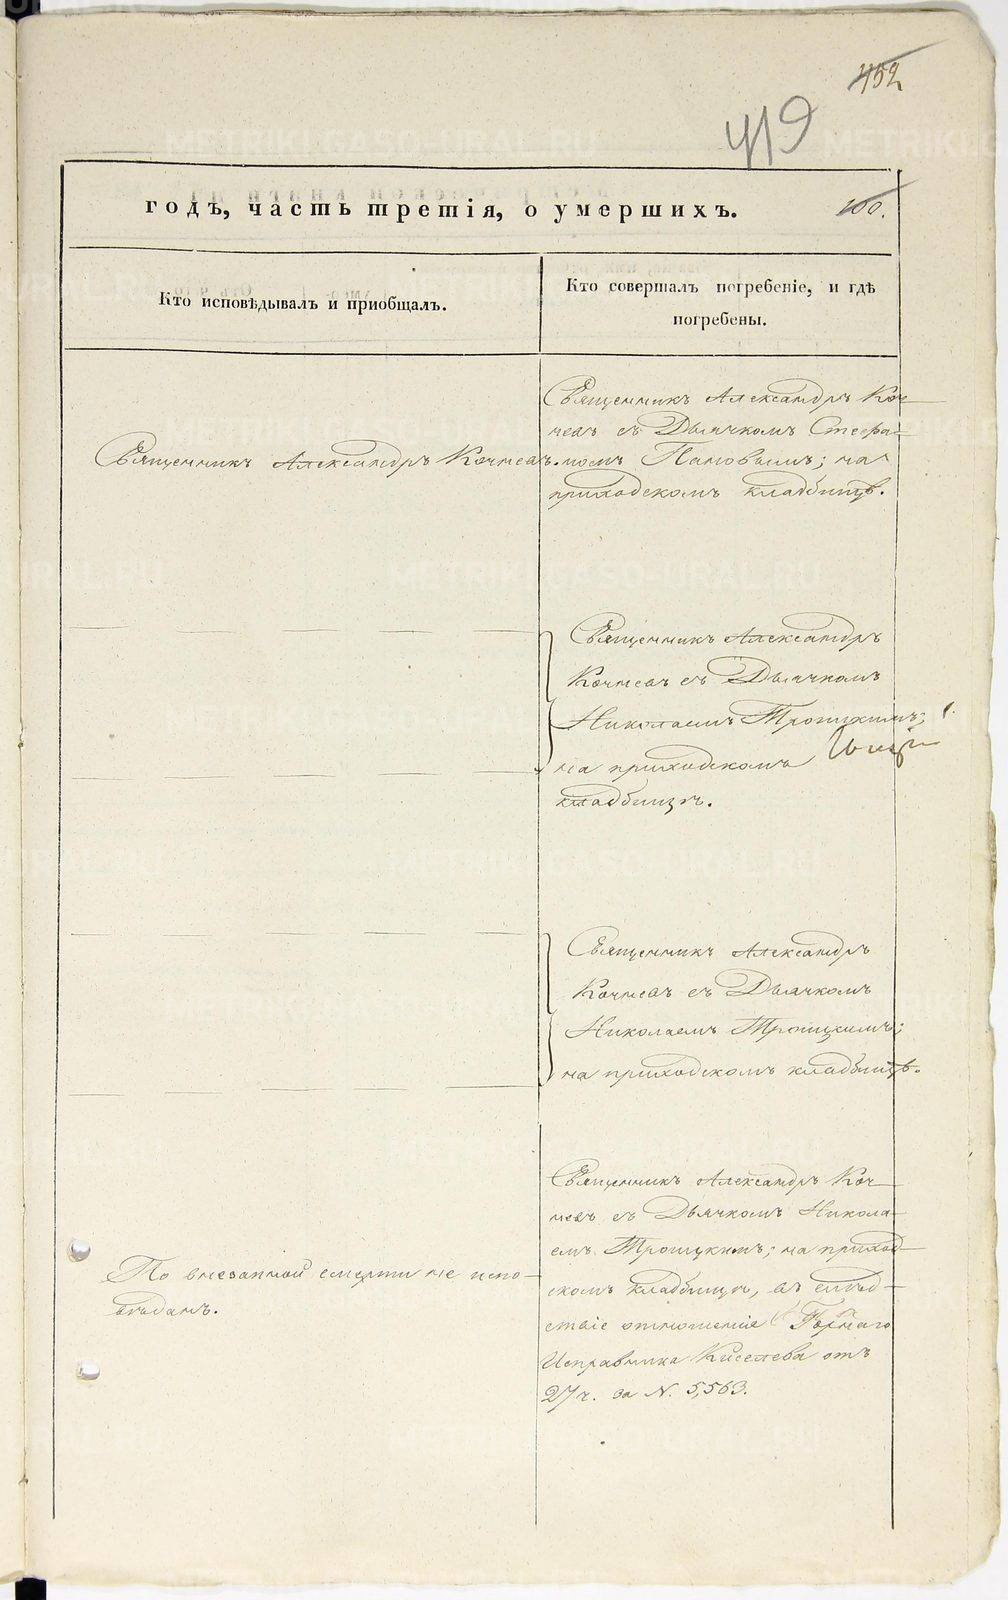 452
419
годъ, часть третія, о умершихъ.
100.
Кто исповѣдывалъ и пріобщалъ.
Кто совершалъ погребеніе, и гдѣ
погребены.
Священникъ Александръ Кочневъ.
Священникъ Александръ Коч-
невъ съ Дьячкомъ Стефа-
номъ Поповымъ; на
приходскомъ кладбищѣ.
Священникъ Александръ
Кочневъ съ Дьячкомъ
Николаемъ Троицкимъ;
на приходскомъ
кладбищѣ.
Священникъ Александръ
Кочневъ съ Дьячкомъ
Николаемъ Троицкимъ;
на приходскомъ кладбищѣ.
По внезапной смерти не испо-
вѣданъ.
Священникъ Александръ Коч-
невъ съ Дьячкомъ Никола-
емъ Троицкимъ; на приход-
скомъ кладбищѣ, въ слѣд-
ствіе отношенія Горнаго
Исправника Киселева отъ
27 ч. за N. 5,563.
METRIKI.GASO-URAL.RU